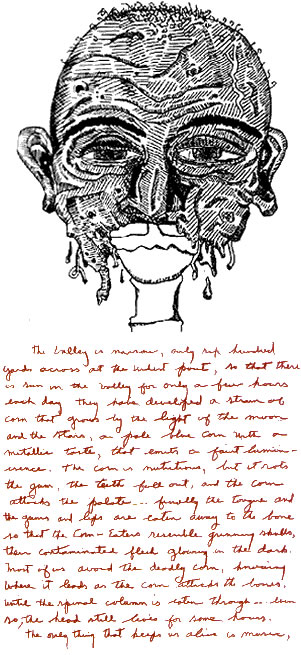 The Valley is narrow, only six hundred
yards across at the widest point, so that there
is sun in the valley for only a few hours
each day. They have developed a strain of
corn that grows by the light of the moon
and the stars, a pale blue corn with a
metallic taste, that emits a faint lumin-
iscence. The corn is nutritious, but it rots
the gum, the teeth fall out, and the corn
attacks the palate... finally the tongue and
the gums and lips are eaten away to the bone
so that the Corn-Eaters resemble grinning skulls,
their contaminated flesh glowing in the dark.
Most of us avoid the deadly corn, knowing
where it leads as the corn attacks the bones,
until the spinal column is eaten through... even
so, the head still lives for some hours.
The only thing that keeps us alive is music,